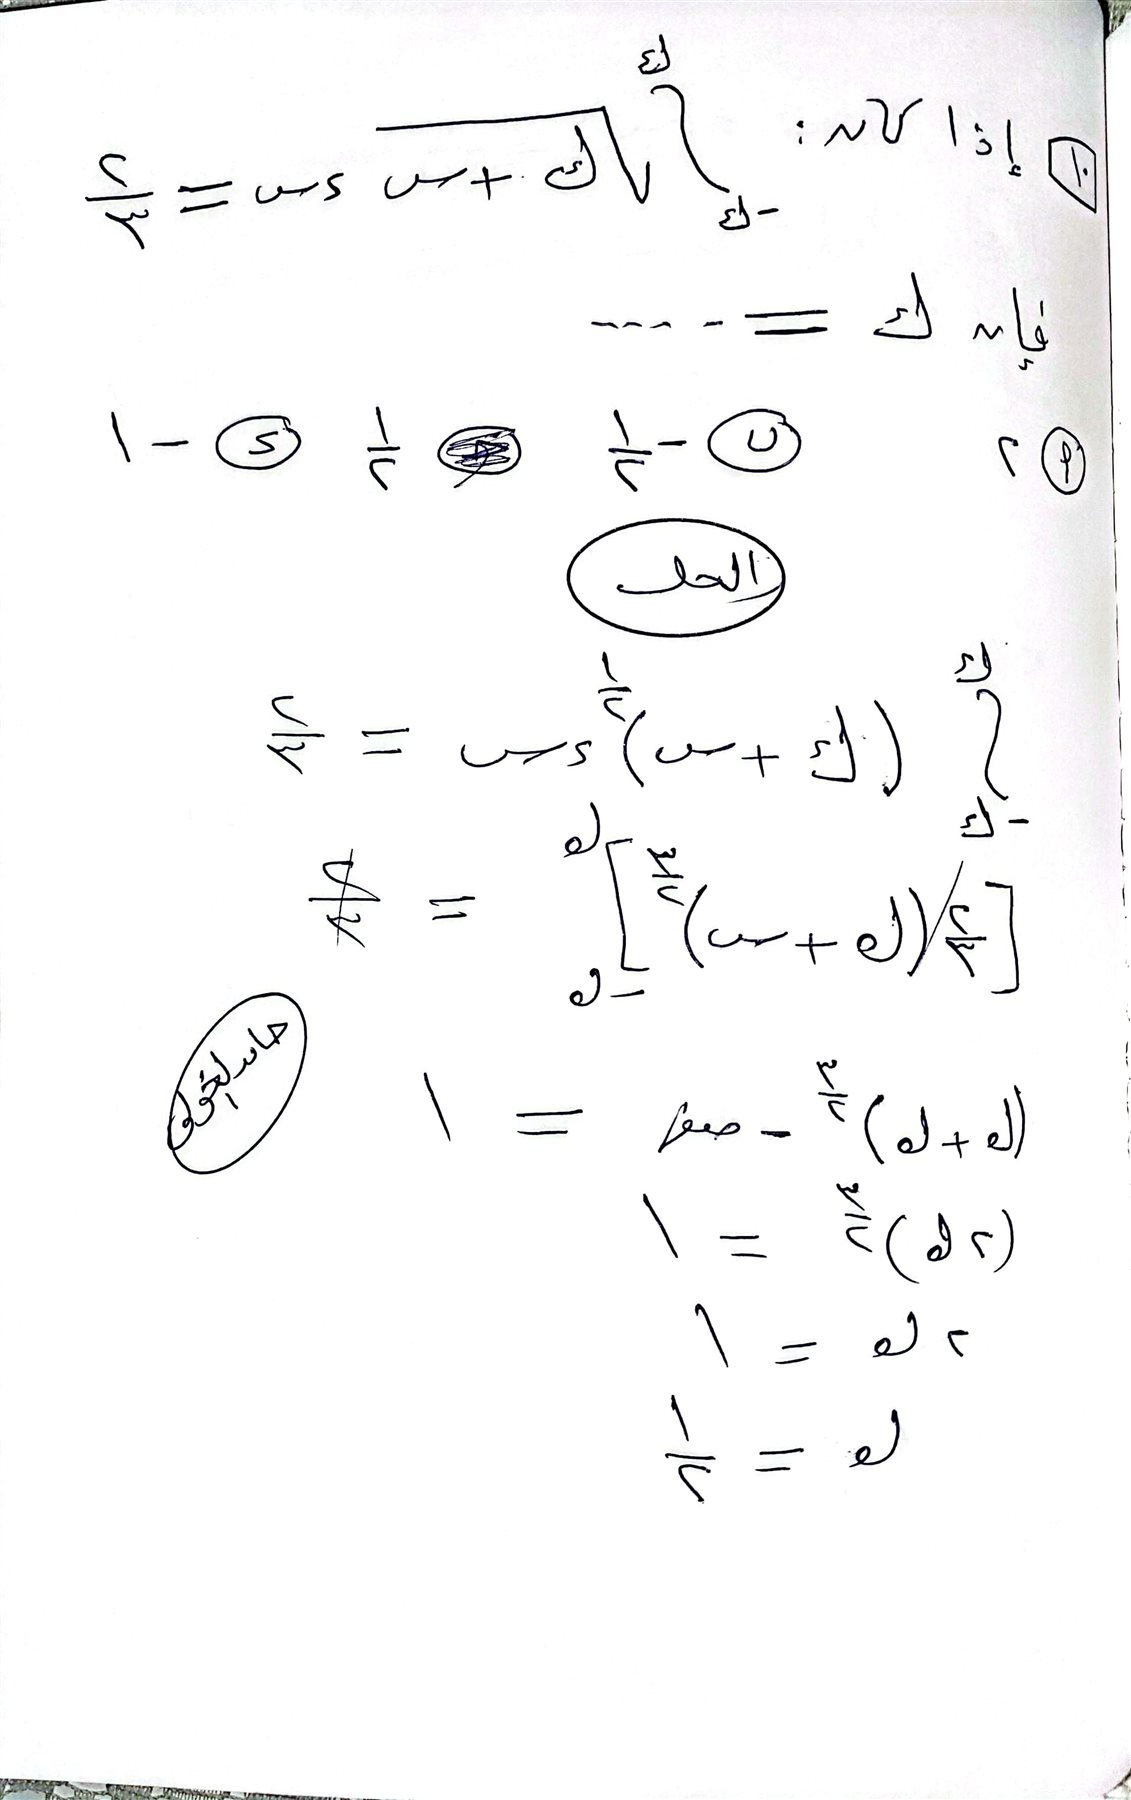 ١ إذا كان: ∫₋ك^ك √(ك + س) ءس = ٢/٣
فإن ك = ‎- ----
أ ٢ ب -١/٢ ج ١/٢ ء -١
الحل
∫₋ك^ك (ك + س)^(١/٢) ءس = ٢/٣
[٢/٣ (ك + س)^(٣/٢)]₋ك^ك = ٢/٣
(ك + ك)^(٣/٢) - صفر = ١
(٢ك)^(٣/٢) = ١
٢ك = ١
ك = ١/٢